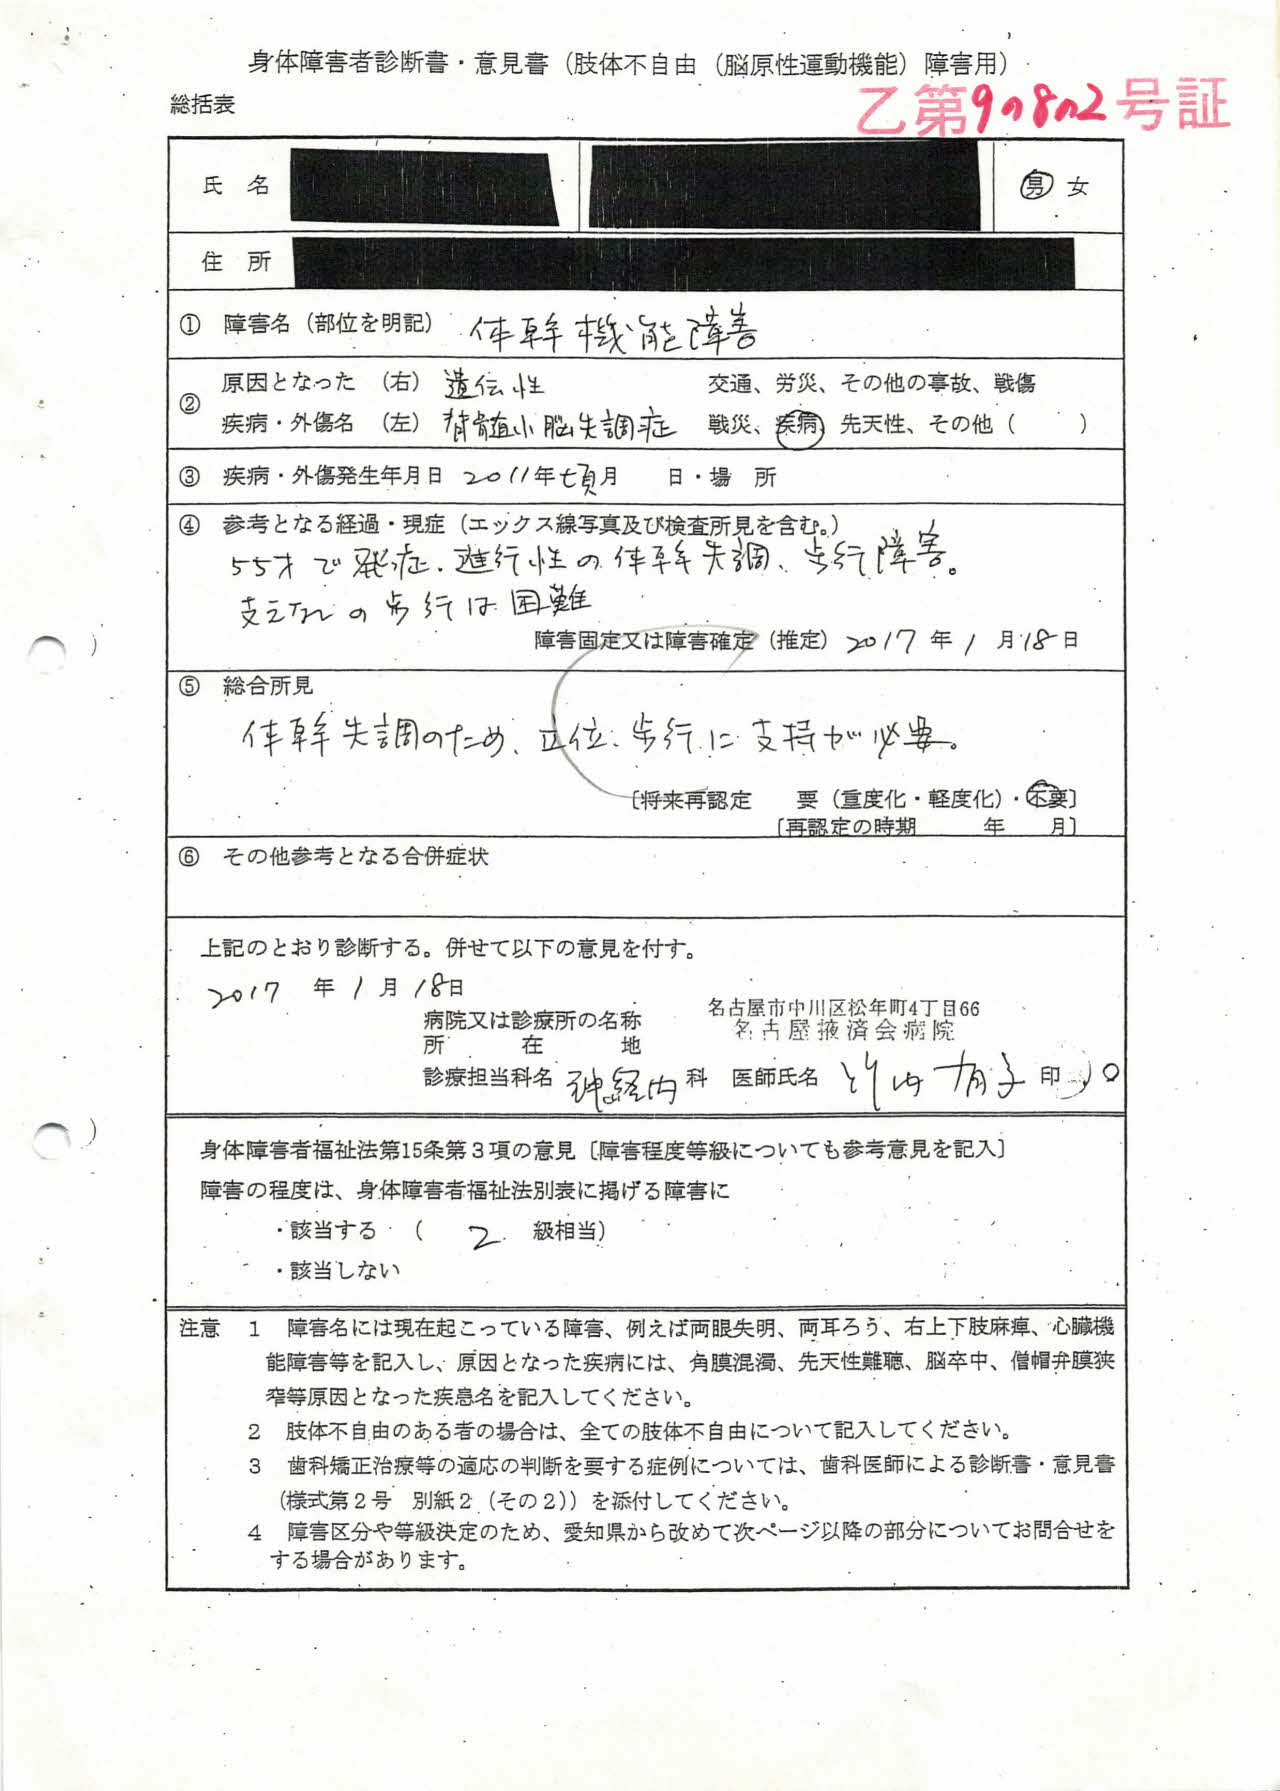 身体障害者診断書・意見書（肢体不自由（脳原性運動機能）障害用）
総括表
乙第9の8の2号証
氏 名
男 女
住 所
① 障害名（部位を明記） 体幹機能障害
② 原因となった （右） 遺伝性 交通、労災、その他の事故、戦傷
疾病・外傷名 （左） 脊髄小脳失調症 戦災、疾病、先天性、その他（ ）
③ 疾病・外傷発生年月日 2011年頃月 日・場 所
④ 参考となる経過・現症（エックス線写真及び検査所見を含む。）
55才で発症．進行性の体幹失調、歩行障害。
支えなしの歩行は困難
障害固定又は障害確定（推定） 2017年1月18日
⑤ 総合所見
体幹失調のため、立位、歩行に支持が必要。
〔将来再認定 要（重度化・軽度化）・不要〕
〔再認定の時期 年 月〕
⑥ その他参考となる合併症状
上記のとおり診断する。併せて以下の意見を付す。
2017 年 1 月 18日
名古屋市中川区松年町4丁目66
病院又は診療所の名称 名古屋掖済会病院
所 在 地
診療担当科名 神経内 科 医師氏名 内 有子 印
身体障害者福祉法第15条第３項の意見〔障害程度等級についても参考意見を記入〕
障害の程度は、身体障害者福祉法別表に掲げる障害に
・該当する （ 2 級相当）
・該当しない
注意 １ 障害名には現在起こっている障害、例えば両眼失明、両耳ろう、右上下肢麻痺、心臓機
能障害等を記入し、原因となった疾病には、角膜混濁、先天性難聴、脳卒中、僧帽弁膜狭
窄等原因となった疾患名を記入してください。
２ 肢体不自由のある者の場合は、全ての肢体不自由について記入してください。
３ 歯科矯正治療等の適応の判断を要する症例については、歯科医師による診断書・意見書
（様式第２号 別紙２（その２））を添付してください。
４ 障害区分や等級決定のため、愛知県から改めて次ページ以降の部分についてお問合せを
する場合があります。